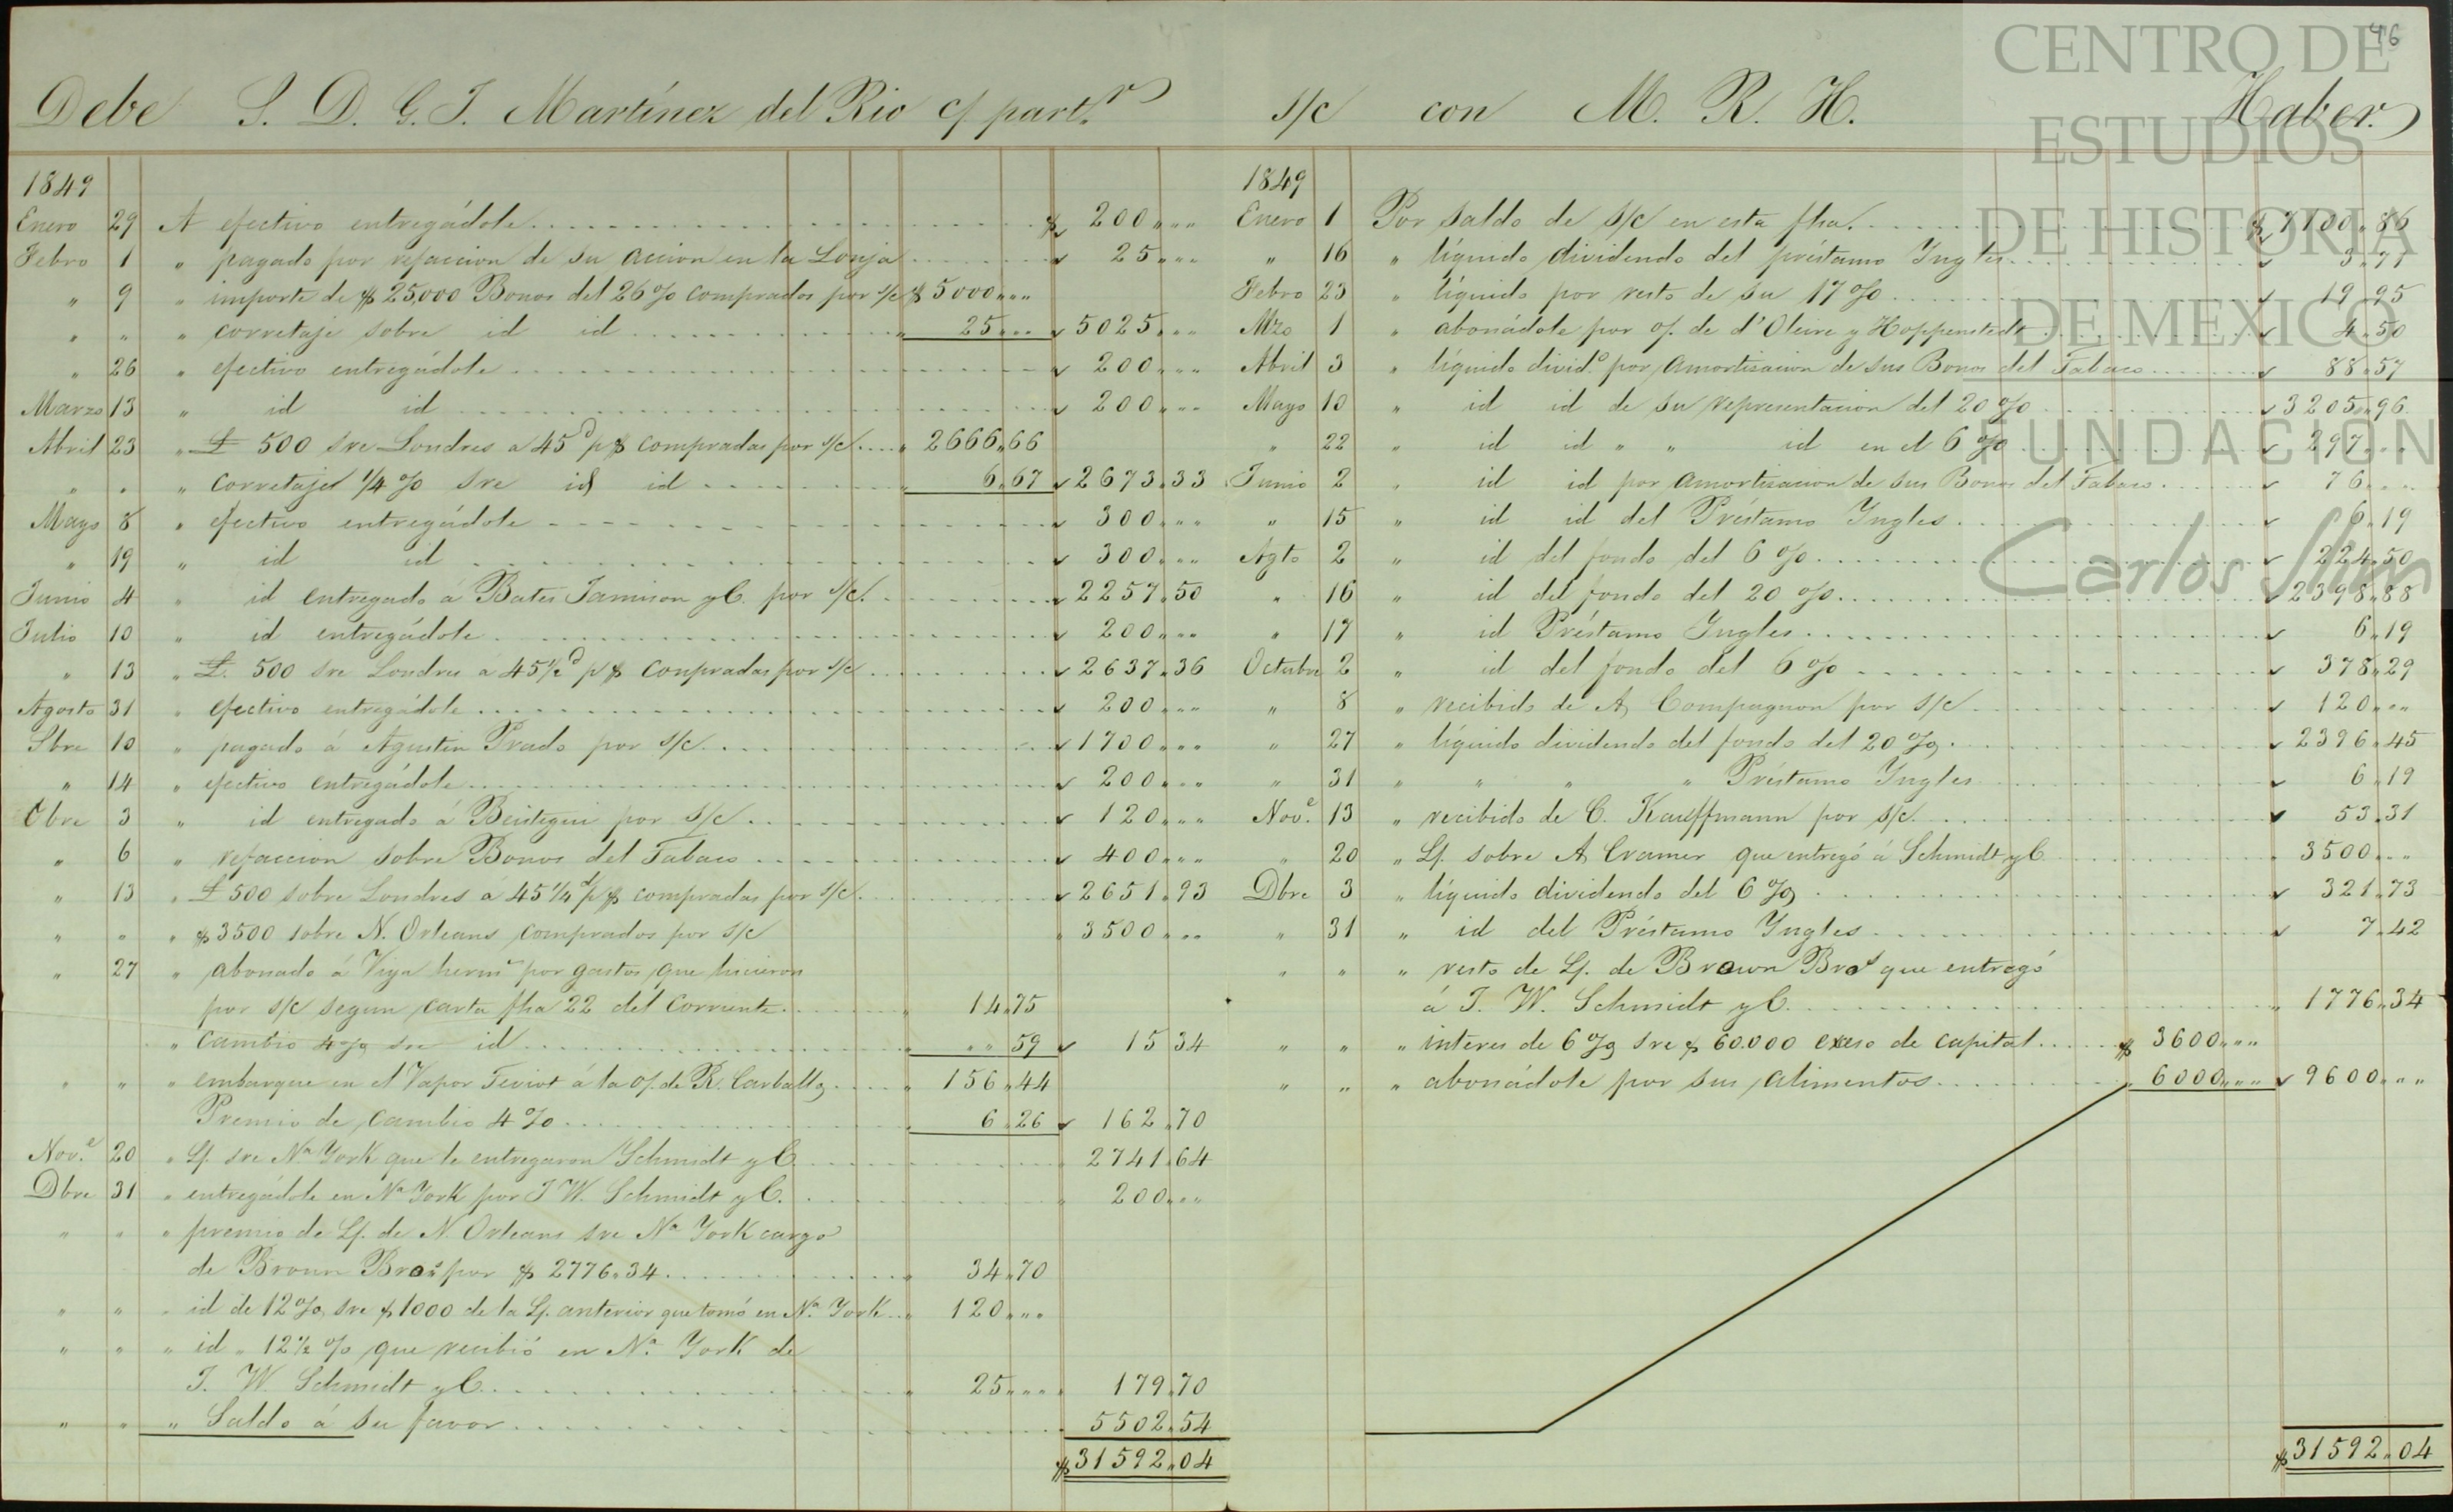 46
CENTRO DE ESTUDIOS DE HISTORIA DE MEXICO
FUNDACIÓN
Carlos Slim
Debe S. D. G. J. Martínez del Rio c/ part.r
1849
Enero 29 A efectivo entregádole $ 200 " "
Febro 1 " pagado por refaccion de su accion en la Lonja 25 " "
" 9 " importe de $ 25,000 Bonos del 26 % comprados por s/c $ 5000 " "
" " " corretaje sobre id id " 25 " " 5025 " "
" 26 " efectivo entregádole 200 " "
Marzo 13 " id id 200 " "
Abril 23 " £ 500 sre Londres a 45 d p $ compradas por s/c " 2666 " 66
" " " corretaje 1/4 % sre id id 6 " 67 2673 " 33
Mayo 8 " efectivo entregádole 300 " "
" 19 " id id 300 " "
Junio 4 " id entregado á Bates Jamison y C. por s/c. 2257 " 50
Julio 10 " id entregádole 200 " "
" 13 " £. 500 sre Londres a 45 1/2 d p $ conpradas por s/c 2637 " 36
Agosto 31 " efectivo entregádole 200 " "
Sbre 10 " pagado á Agustin Prado por s/c. 1700 " "
" 14 " efectivo entregádole 200 " "
Obre 3 " id entregado á Beistegui por s/c. 120 " "
" 6 " refaccion sobre Bonos del Tabaco 400 " "
" 13 " £ 500 sobre Londres a 45 1/4 d p $ compradas por s/c. 2651 " 93
" " " $ 3500 sobre N. Orleans comprados por s/c " 3500 " "
" 27 " abonado á Viya herms por gastos que hicieron
por s/c segun carta fha 22 del corriente " 14 " 75
" Cambio 4 % sre id " " 59 15 34
" " " embarque en el Vapor Teviot á la o/. de R. Carballo " 156 " 44
Premio de cambio 4 % 6 " 26 162 " 70
Nov.e 20 " L/. sre Na York que le entregaron Schmidt y C. 2741 " 64
Dbre 31 " entregádole en Na York por J W. Schmidt y C. " 200 " "
" " " premio de L/. de N. Orleans sre Na York cargo
de Brown Bros por $ 2776 " 34 " 34 " 70
" " " id de 12 % sre $ 1000 de la L/. anterior que tomó en Na York " 120 " "
" " " id " 12 1/2 % que recibió en Na York de
J. W. Schmidt y C. " 25 " " 179 " 70
" " " Saldo á su favor 5502 " 54
$ 31592 " 04
s/c con M. R. H. Haber.
1849
Enero 1 Por saldo de s/c en esta fha. $ 7100 " 86
" 16 " líquido dividendo del préstamo Yngles 3 " 71
Febro 23 " líquido por resto de su 17 % 19 " 95
Mzo 1 " abonádole por o/. de d'Oleire y Hoppenstedt 4 " 50
Abril 3 " líquido divid.o por amortisacion de sus Bonos del Tabaco 88 " 57
Mayo 10 " id id de su representacion del 20 % 3205 " 96
" 22 " id id " " id en el 6 % 297 " "
Junio 2 " id id por amortisacion de sus Bonos del Tabaco. 76 " "
" 15 " id id del Préstamo Yngles. 6 " 19
Agto 2 " id del fondo del 6 % 224 " 50
" 16 " id del fondo del 20 % 2398 " 88
" 17 " id Préstamo Yngles 6 " 19
Octubre 2 " id del fondo del 6 % 378 " 29
" 8 " recibido de A Compagnon por s/c 120 " "
" 27 " líquido dividendo del fondo del 20 %. 2396 " 45
" 31 " " " " Préstamo Yngles 6 " 19
Nov.e 13 " recibido de C. Kauffmann por s/c. 53 " 31
" 20 " L/. sobre A Cramer que entregó á Schmidt y C 3500 " "
Dbre 3 " líquido dividendo del 6 % 321 " 73
" 31 " id del Préstamo Yngles 7 " 42
" " " resto de L/. de Brown Bros que entregó
á J. W. Schmidt y C. " 1776 " 34
" " " interes de 6 % sre $ 60.000 exeso de capital $ 3600 " "
" " " abonádole por sus alimentos " 6000 " " 9600 " "
$ 31592 " 04